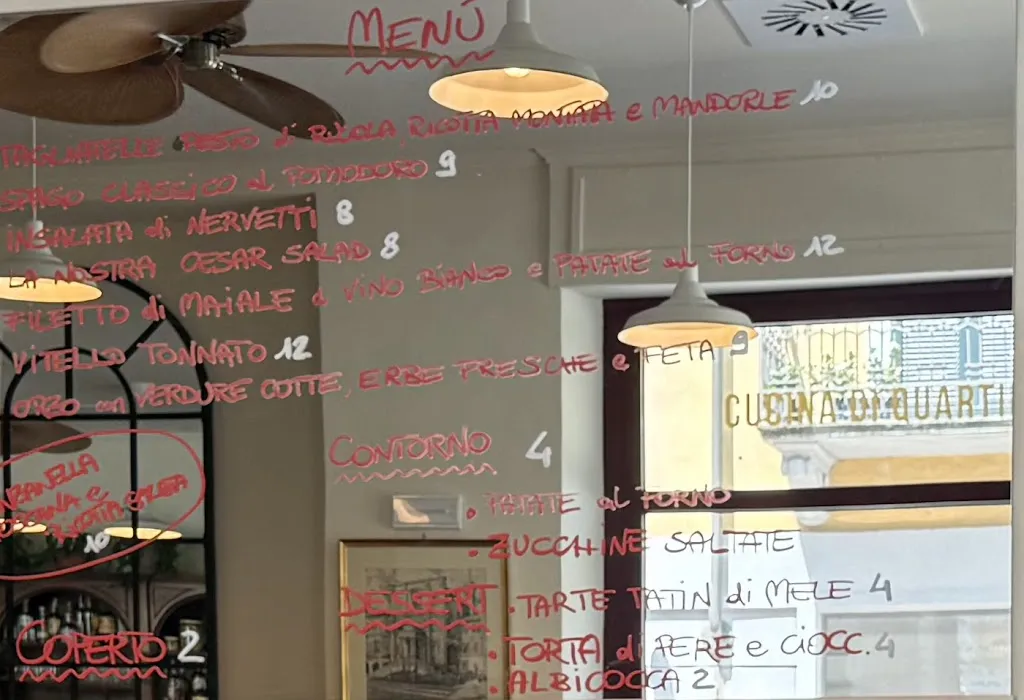 MENÙ
TAGLIATELLE PESTO di RUCOLA, RICOTTA MONTATA e MANDORLE 10
SPAGO CLASSICO al POMODORO 9
INSALATA di NERVETTI 8
LA NOSTRA CESAR SALAD 8
FILETTO di MAIALE al VINO BIANCO e PATATE al FORNO 12
VITELLO TONNATO 12
ORZO con VERDURE COTTE, ERBE FRESCHE e FETA 9
CUCINA DI QUARTI
CONTORNO 4
• PATATE al FORNO
• ZUCCHINE SALTATE
NZANELLA
TOSCANA e
RICOTTA SALATA
10
DESSERT • TARTE TATIN di MELE 4
• TORTA di PERE e CIOCC. 4
• ALBICOCCA 2
COPERTO 2